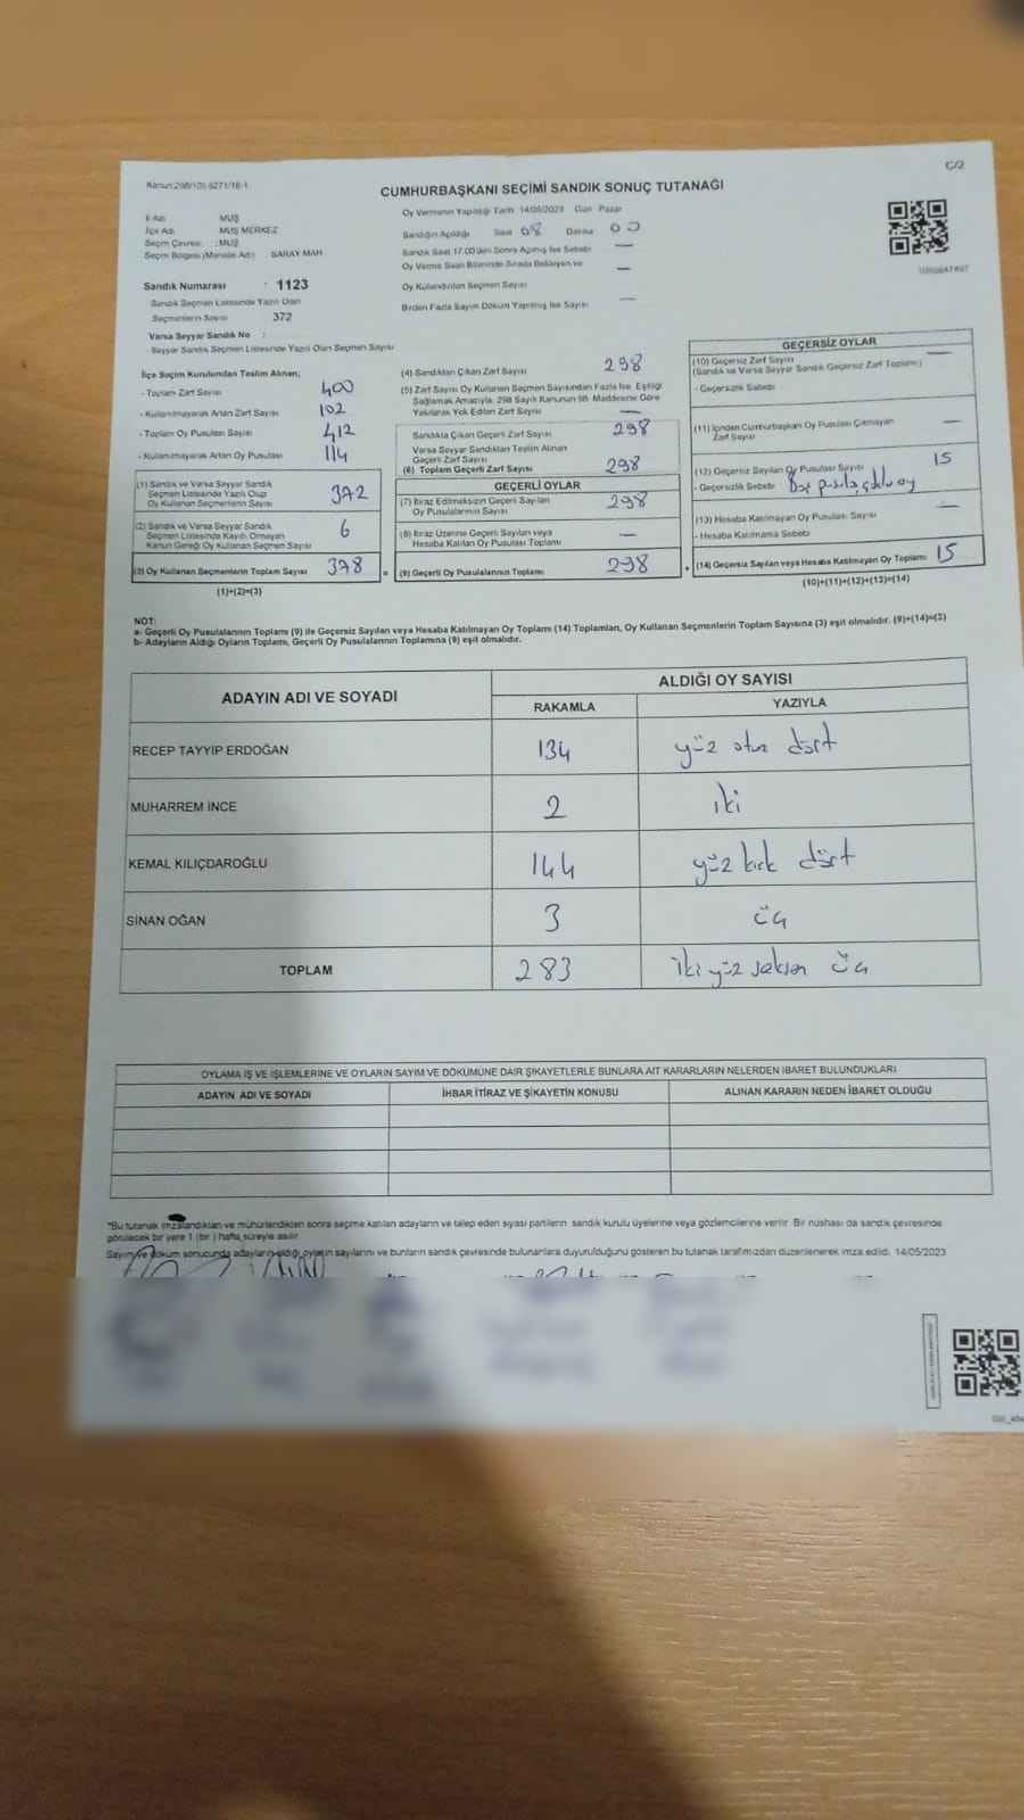 C/2
CUMHURBAŞKANI SEÇİMİ SANDIK SONUÇ TUTANAĞI
Oy Vermenin Yapıldığı Tarih 14/05/2023 Gün Pazar
İl Adı MUŞ
İlçe Adı MUŞ MERKEZ
Seçim Çevresi : MUŞ
Seçim Bölgesi (Mahalle Adı) : SARAY MAH
Sandığın Açıldığı Saat 08 Dakika 00
Sandık Saat 17.00'den Sonra Açılmış İse Sebebi —
Oy Verme Saati Bitiminde Sırada Bekleyen ve
Oy Kullandırılan Seçmen Sayısı —
Birden Fazla Sayım Döküm Yapılmış İse Sayısı —
Sandık Numarası : 1123
Sandık Seçmen Listesinde Yazılı Olan
Seçmenlerin Sayısı 372
Varsa Seyyar Sandık No :
- Seyyar Sandık Seçmen Listesinde Yazılı Olan Seçmen Sayısı
İlçe Seçim Kurulundan Teslim Alınan;
- Toplam Zarf Sayısı 400
- Kullanılmayarak Artan Zarf Sayısı 102
- Toplam Oy Pusulası Sayısı 412
- Kullanılmayarak Artan Oy Pusulası 114
(1) Sandık ve Varsa Seyyar Sandık
Seçmen Listesinde Yazılı Olup
Oy Kullanan Seçmenlerin Sayısı 372
(2) Sandık ve Varsa Seyyar Sandık
Seçmen Listesinde Kayıtlı Olmayan
Kanun Gereği Oy Kullanan Seçmen Sayısı 6
(3) Oy Kullanan Seçmenlerin Toplam Sayısı 378
(1)+(2)=(3)
(4) Sandıktan Çıkan Zarf Sayısı 298
(5) Zarf Sayısı Oy Kullanan Seçmen Sayısından Fazla İse, Eşitliği
Sağlamak Amacıyla, 298 Sayılı Kanunun 98. Maddesine Göre
Yakılarak Yok Edilen Zarf Sayısı —
Sandıkta Çıkan Geçerli Zarf Sayısı 298
Varsa Seyyar Sandıktan Teslim Alınan
Geçerli Zarf Sayısı
(6) Toplam Geçerli Zarf Sayısı 298
GEÇERLİ OYLAR
(7) İtiraz Edilmeksizin Geçerli Sayılan
Oy Pusulalarının Sayısı 298
(8) İtiraz Üzerine Geçerli Sayılan veya
Hesaba Katılan Oy Pusulası Toplamı —
= (9) Geçerli Oy Pusulalarının Toplamı 298
GEÇERSİZ OYLAR
(10) Geçersiz Zarf Sayısı —
(Sandık ve Varsa Seyyar Sandık Geçersiz Zarf Toplamı)
- Geçersizlik Sebebi
(11) İçinden Cumhurbaşkanı Oy Pusulası Çıkmayan
Zarf Sayısı —
(12) Geçersiz Sayılan Oy Pusulası Sayısı 15
- Geçersizlik Sebebi Boş pusula
(13) Hesaba Katılmayan Oy Pusulası Sayısı —
- Hesaba Katılmama Sebebi
+ (14) Geçersiz Sayılan veya Hesaba Katılmayan Oy Toplamı 15
(10)+(11)+(12)+(13)=(14)
NOT:
a- Geçerli Oy Pusulalarının Toplamı (9) ile Geçersiz Sayılan veya Hesaba Katılmayan Oy Toplamı (14) Toplamları, Oy Kullanan Seçmenlerin Toplam Sayısına (3) eşit olmalıdır. (9)+(14)=(3)
b- Adayların Aldığı Oyların Toplamı, Geçerli Oy Pusulalarının Toplamına (9) eşit olmalıdır.
ADAYIN ADI VE SOYADI
ALDIĞI OY SAYISI
RAKAMLA YAZIYLA
RECEP TAYYIP ERDOĞAN 134 yüz otuz dört
MUHARREM İNCE 2 iki
KEMAL KILIÇDAROĞLU 144 yüz kırk dört
SİNAN OĞAN 3 üç
TOPLAM 283 iki yüz seksen üç
OYLAMA İŞ VE İŞLEMLERİNE VE OYLARIN SAYIM VE DÖKÜMÜNE DAİR ŞİKAYETLERLE BUNLARA AİT KARARLARIN NELERDEN İBARET BULUNDUKLARI
ADAYIN ADI VE SOYADI İHBAR İTİRAZ VE ŞİKAYETİN KONUSU ALINAN KARARIN NEDEN İBARET OLDUĞU
"Bu tutanak imzalandıktan ve mühürlendikten sonra seçime katılan adayların ve talep eden siyasi partilerin sandık kurulu üyelerine veya gözlemcilerine verilir. Bir nüshası da sandık çevresinde
görülecek bir yere 1 (bir) hafta süreyle asılır.
Sayım ve döküm sonucunda adayların aldığı oyların sayılarını ve bunların sandık çevresinde bulunanlara duyurulduğunu gösteren bu tutanak tarafımızdan düzenlenerek imza edildi. 14/05/2023